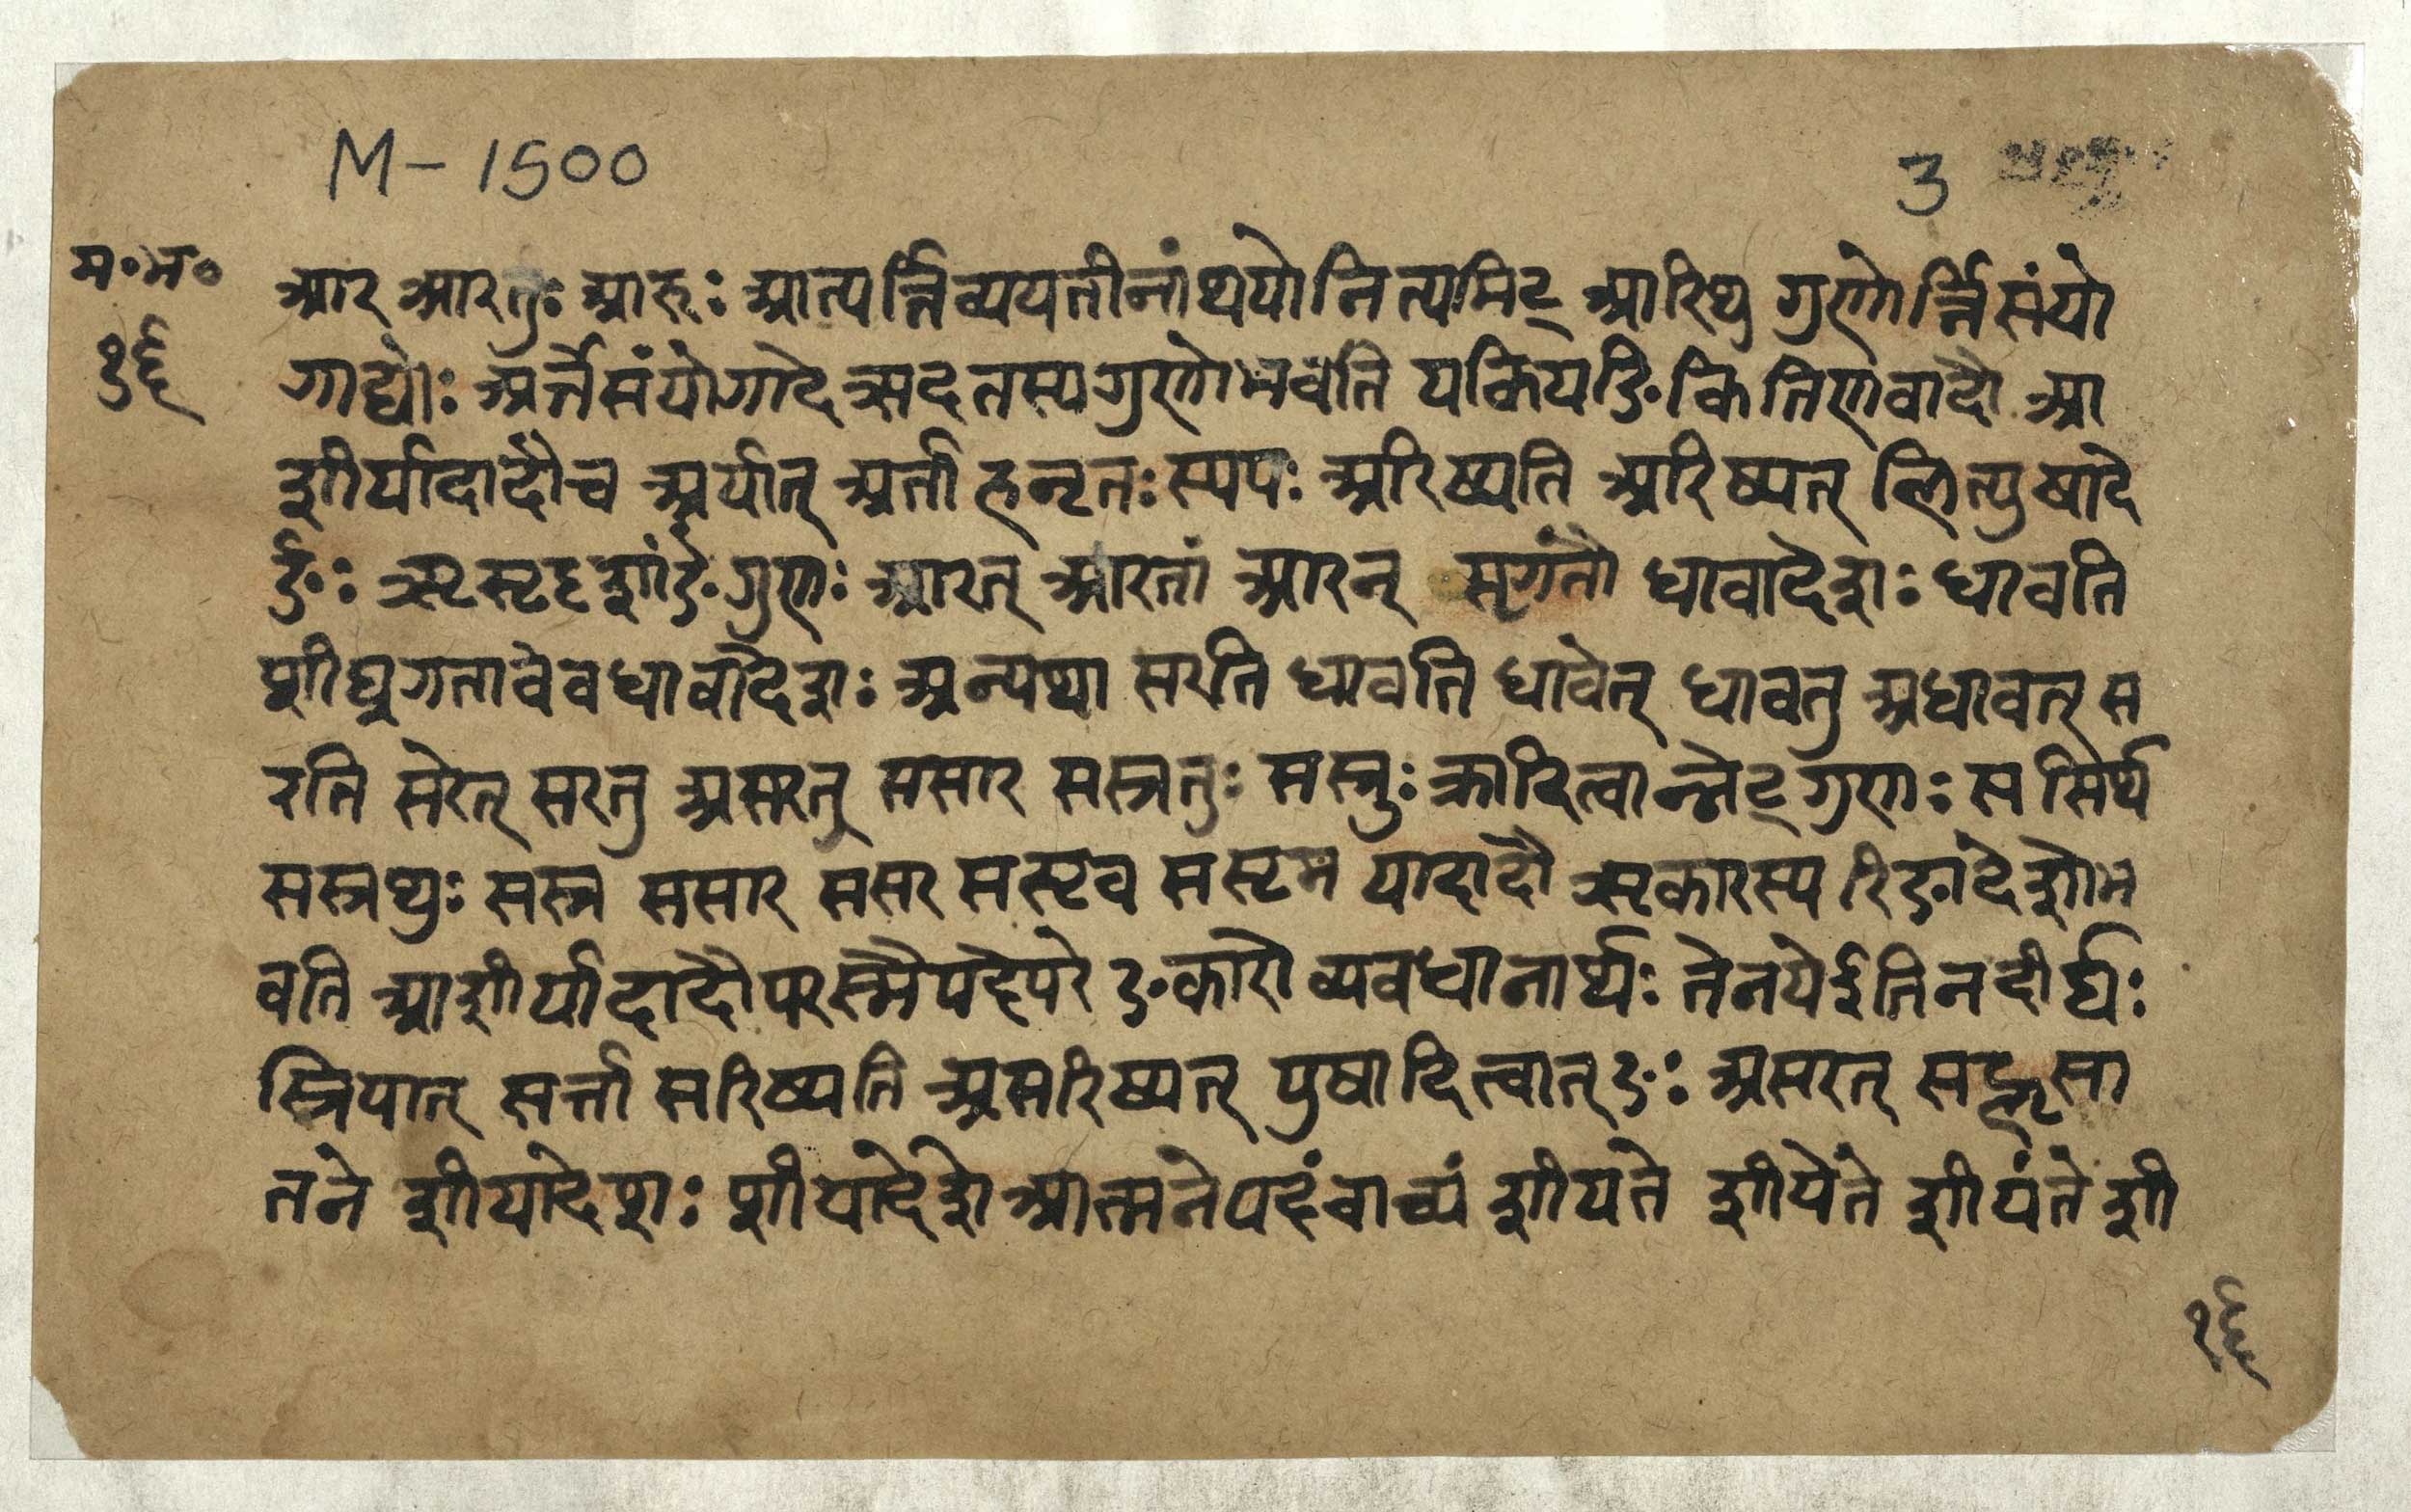 M-1500
3
म॰म॰
१६
आर आरतुः आरुः आत्यर्त्तिव्ययतीनांथपोनित्यमिट् आरिथ गुणोर्त्तिसंयो
गाद्योः अर्त्तेसंयोगादेऋदंतस्यगुणोभवति यकियङिकितिणवादौ आ
शीर्यादादौच अर्यात् अर्त्ता हनृतः स्यपः अरिष्यति आरिष्यत् लित्पुषादे
र्ङः ऋसृदृशांर्ङेगुणः आरत् आरतां आरन् सृगतौ धावादेशः धावति
शीघ्रगतावेवधावादेशः अन्यथा सरति धावति धावेत् धावतु अधावत् स
रति सरेत् सरतु असरत् ससार सस्रतुः सस्रुः क्रादित्वान्नेट् गुणः ससर्थ
सस्रथुः सस्र ससार ससर ससृव ससृम यादादौ ऋकारस्य रिङादेशोभ
वति आशीर्यादादौपरस्मैपदेपरे ङकारो व्यवधानार्थः तेनयेईतिनदीर्घः
स्रियात् सर्त्ता सरिष्यति असरिष्यत् पुषादित्वात् ङः असरत् सदॢसा
तने शीयादेशः शीयादेशे आत्मनेपदंवाच्यं शीयते शीयेते शीयंते शी
१६